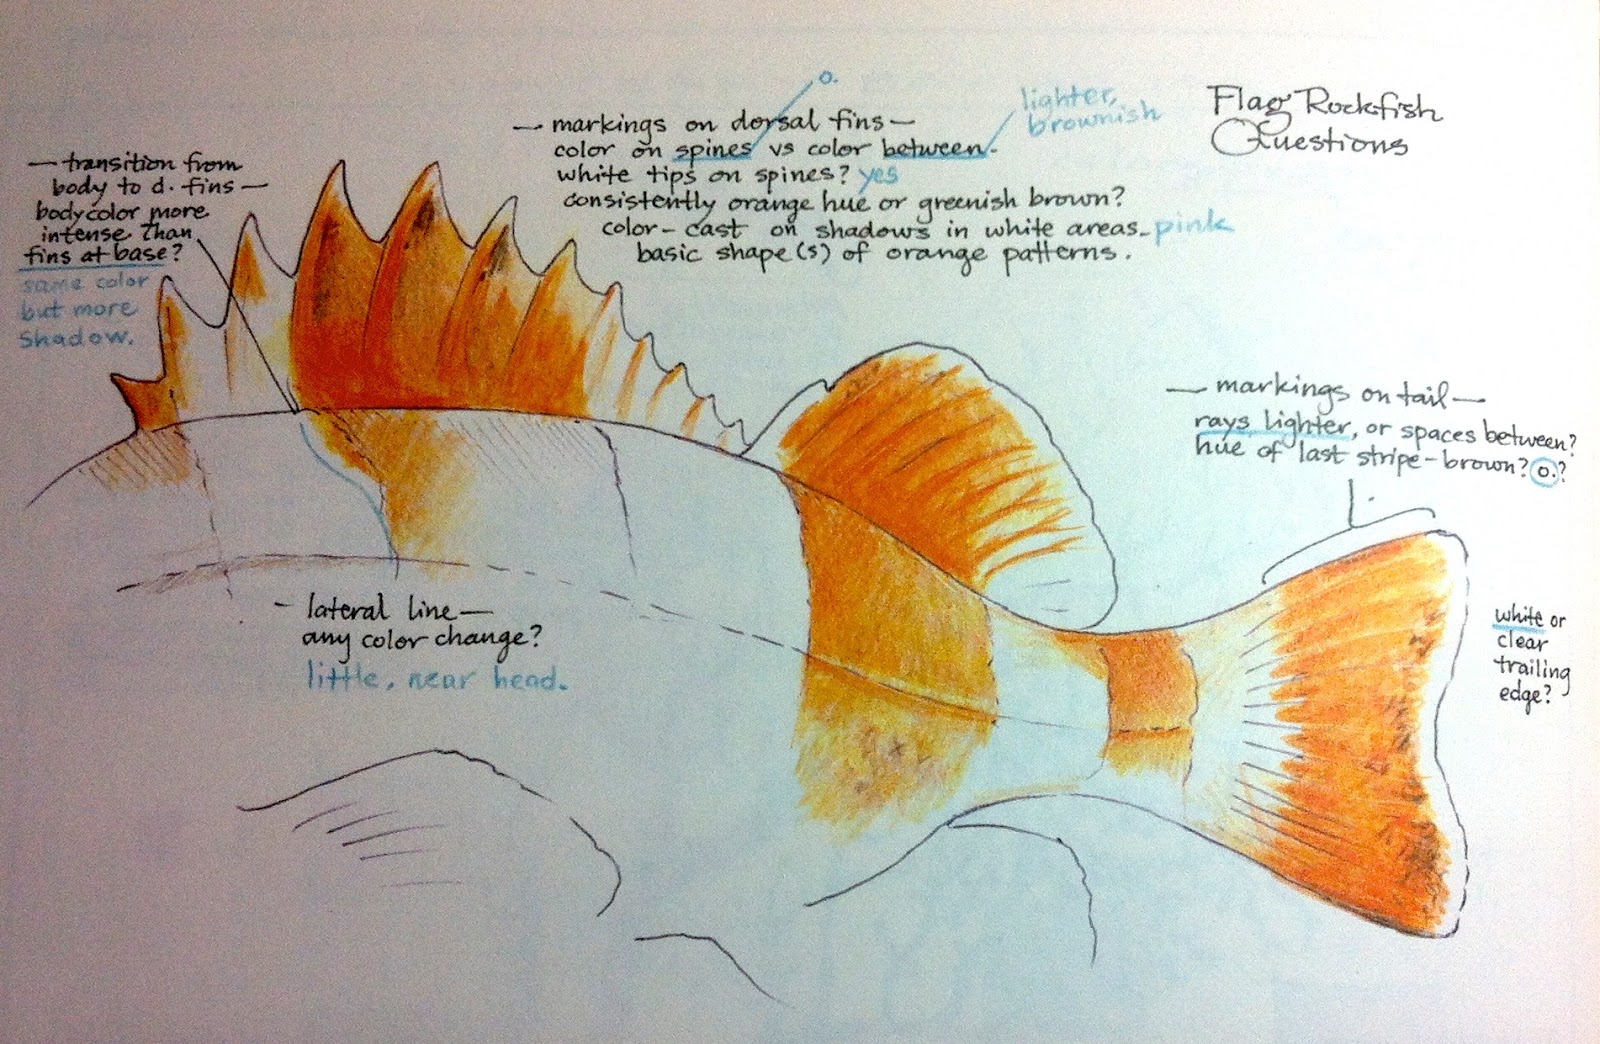 Flag Rockfish
Questions
— transition from
body to d. fins —
body color more
intense than
fins at base?
same color
but more
shadow.
o.
lighter,
brownish
— markings on dorsal fins —
color on spines vs color between.
white tips on spines? yes
consistently orange hue or greenish brown?
color-cast on shadows in white areas - pink
basic shape(s) of orange patterns.
— markings on tail —
rays lighter, or spaces between?
hue of last stripe - brown? o.?
white or
clear
trailing
edge?
- lateral line —
any color change?
little, near head.